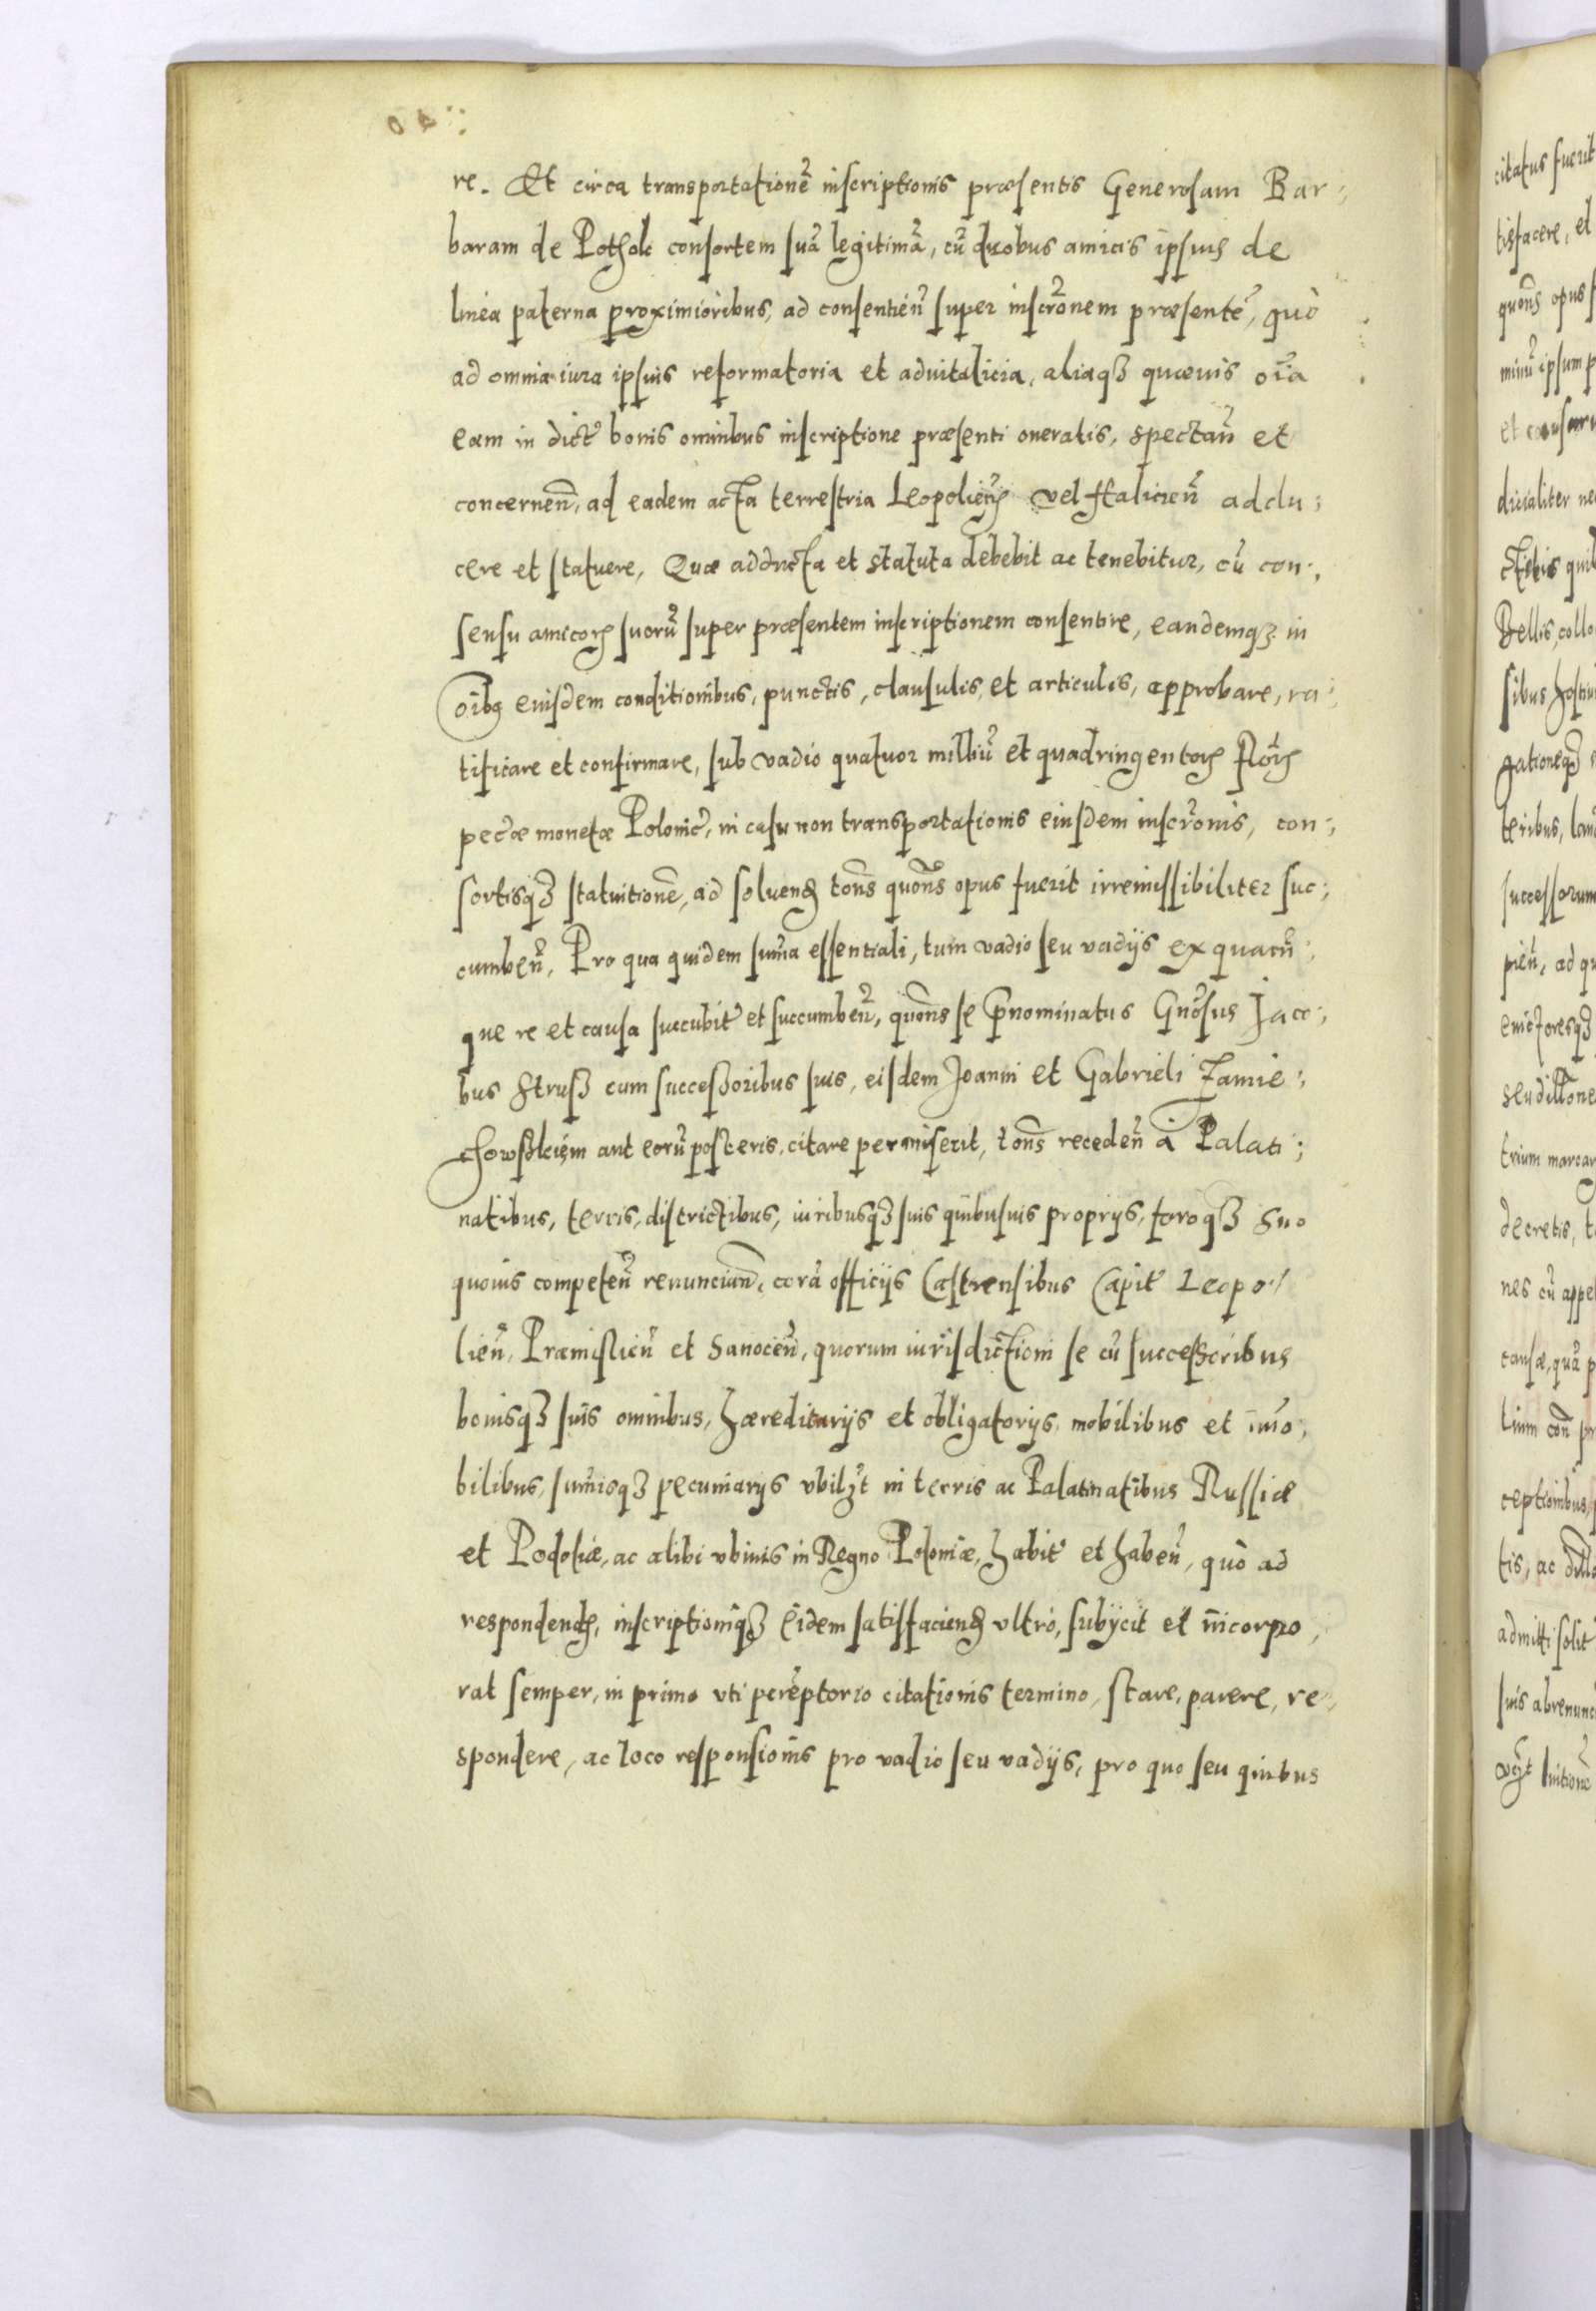 re. Et circa transportationẽ inscriptionis præsentis Generosam Bar;
baram de Pothok consortem suã legitimã, cũ duobus amicis ipsius de
linea paterna proximioribus, ad consentien̄ super inscr̃onem præsentẽ, quò
ad omnia iura ipsius reformatoria et aduitalicia, aliaqȝ quæuis oĩa
eam in dict̃ bonis omnibus inscriptione præsenti oneratis, spectan̄ et
concernen̄, ad eadem acta terrestria Leopolien̄ vel Halicien̄ addu;
cere et statuere, Quæ adducta et statuta debebit ac tenebitur, cũ con;
sensu amicorꝝ suorũ super præsentem inscriptionem consentire, eandemqȝ in
oĩbꝰ eiusdem conditionibus, punctis, clausulis et articulis, approbare, ra;
tificare et confirmare, sub vadio quatuor milliũ et quadringentorꝝ flor̃ꝝ
pec̃æ monetæ Polonic̃, in casu non transportationis eiusdem inscr̃onis, con;
sortisqȝ statuitionẽ, ad soluenꝺ ton̄s quon̄s opus fuerit irremissibiliter suc;
cumben̄, Pro qua quidem sum̃a essentiali, tum vadio seu vadijs ex quacũ;
que re et causa succubit̃ et succumben̄, quon̄s se p̄nominatus Gnõsus Jaco;
bus Struß cum successoribus suis, eisdem Joanni et Gabrieli Zamie;
chowskiem aut eorũ posteris, citare permiserit, ton̄s receden̄ à Palati;
natibus, terris, districtibus, iuribusqȝ suis quibusuis proprijs, foroqȝ suo
quouis competen̄ renuncian̄, corã officijs Castrensibus Capit̃ Leopo;
lien̄, Præmislien̄ et Sanocen̄, quorum iurisdictioni se cũ successoribus
bonisqȝ suis omnibus, hæreditarijs et obligatorijs, mobilibus et im̃o;
bilibus, sum̃isqȝ pecuniarijs vbilꝫt in terris ac Palatinatibus Russiæ
et Podoliæ, ac alibi vbiuis in Regno Poloniæ, habit̃ et haben̄, quò ad
respondenꝺ, inscriptioniqȝ eidem satisfacienꝺ vltrò, subijcit et incorpo;
rat semper, in primo vti perẽptorio citationis termino, stare, parere, re;
spondere, ac loco responsionis pro vadio seu vadijs, pro quo seu quibus
citatus fuerit
tisfacere, et
quon̄s opus
minũ ipsum
dicialiter
Bellis, collo
sibus
gationeqȝ
teribus,
successorum
pien̄, ad
euictoresqȝ
trium
decretis,
nes cũ appe
causæ, quã
ceptionibus,
tis, ac
admitti solit
suis abrenunc